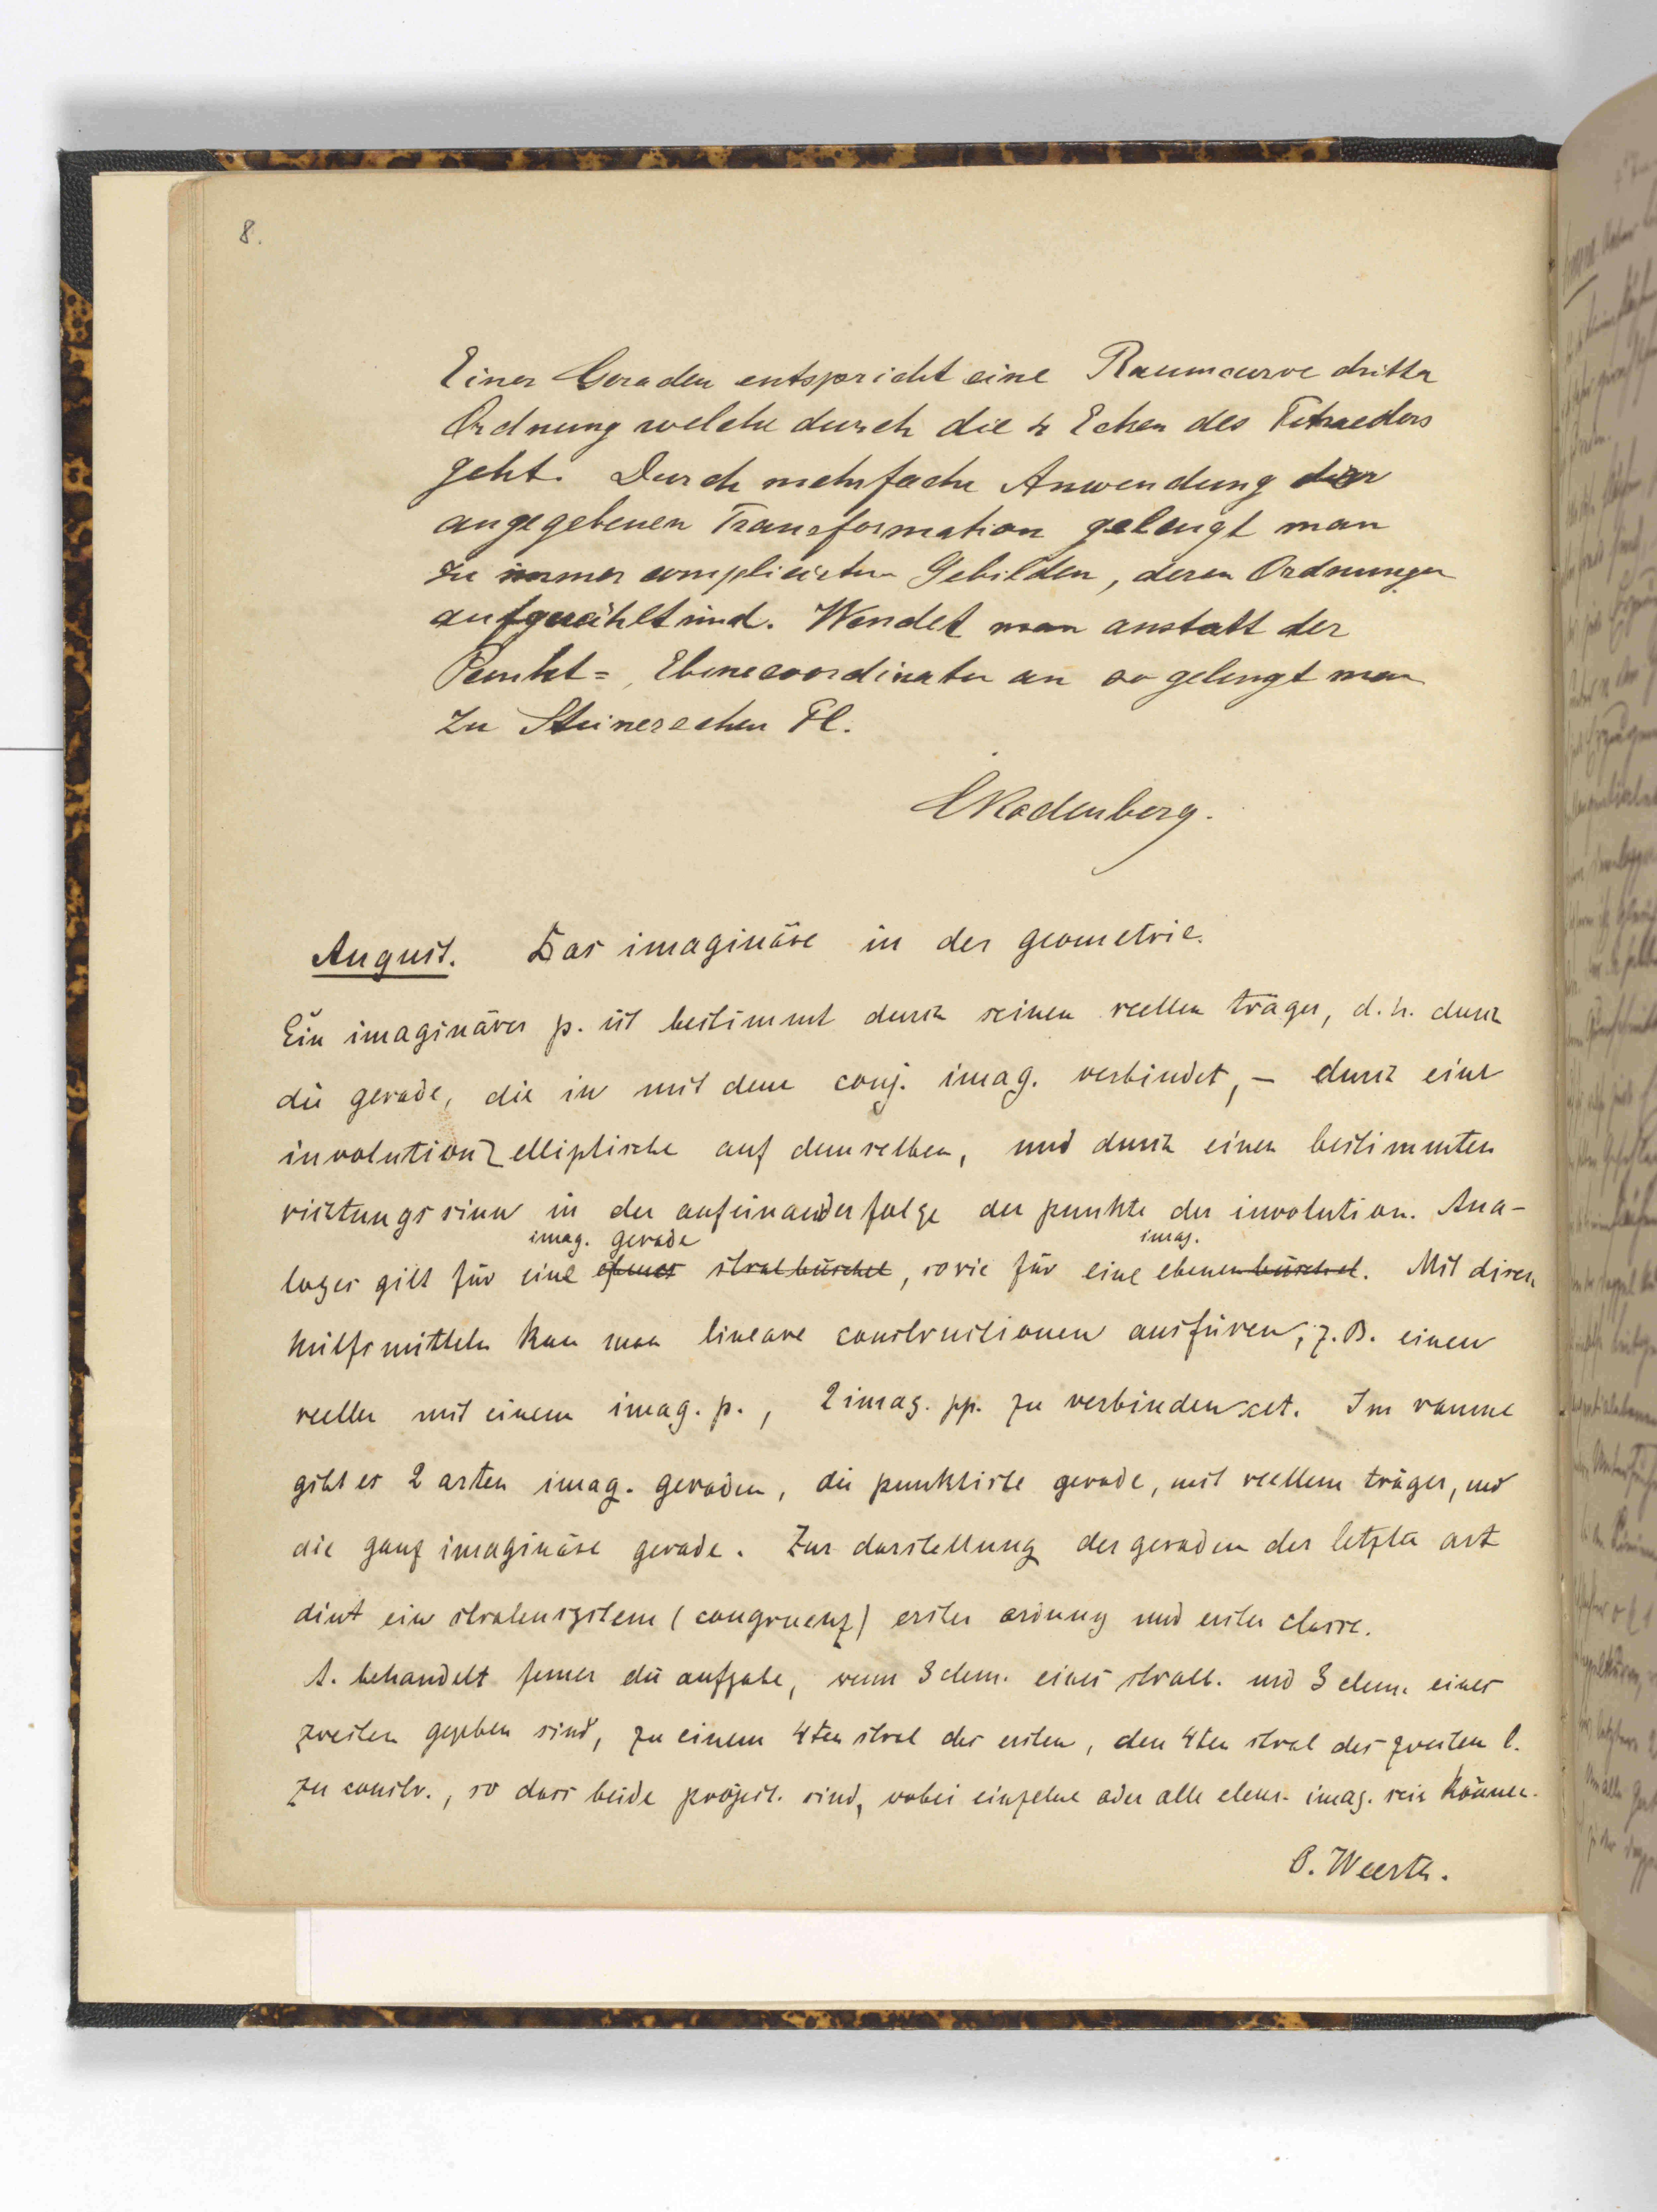 8.
Einer Geraden entspricht eine Raumcurve dritter
Ordnung welche durch die 4 Ecken des Tetraeders
geht. Durch mehrfache Anwendung der
angegebenen Transformation gelangt man
zu immer complicirtern Gebilden, deren Ordnungen
aufgezählt sind. Wendet man anstatt der
Punkt=, Ebenecoordinaten an so gelangt man
zu Steinerschen Fl.
CRodenberg.
August. Das imaginäre in der geometrie.
Ein imaginärer p. ist bestimmt durch seinen reellen träger, d. h. durch
die gerade, die in mit dem conj. imag. verbindet, – durch eine
involution elliptische auf demselben, und durch einen bestimmten
richtungssinn in der aufeinanderfolge der punkte der involution. Ana-
imag. gerade imag.
loges gilt für eine ebenes stralbüschel, sowie für eine ebenenbüschel. Mit disen
hülfsmitteln kan man lineare constructionen ausfüren, z. B. einen
reellen mit einem imag. p., 2 imag. pp. zu verbinden cet. Im raume
gibt es 2 arten imag. geraden, die punktirte gerade, mit reellem träger, und
die ganz imaginäre gerade. Zur darstellung der geraden der letzten art
dint ein stralensystem (congruenz) erster ordnung und erster classe.
A. behandelt ferner die aufgabe, wenn 3 elem. eines stralb. und 3 elem. eines
zweiten gegeben sind, zu einem 4ten stral des ersten, den 4ten stral des zweiten b.
zu constr., so dass beide project. sind, wobei einzelne oder alle elem. imag. sein können.
O. Weerth.